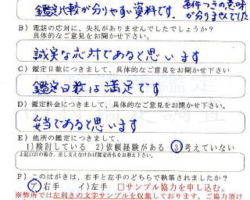 鑑定比較が分りやすい資料です。 条件つきの意味
が分りませんでした
B) 電話の応対に、失礼がありませんでしたでしょうか?
具体的なご意見をお聞かせ下さい。
誠実な応対であると思います
C) 鑑定日数につきまして、具体的なご意見をお聞かせ下さい。
鑑定日数は満足です
D) 鑑定料金につきまして、具体的なご意見をお聞かせ下さい。
妥当であると思います
E) 他所の鑑定につきまして、
1)検討している 2)依頼経験がある 3)考えていない
F) このはがきは、右手と左手のどちらで執筆されましたか?
ア)右手 イ)左手 □サンプル協力を申し込む。
※弊所では左利きの文字サンプルを収集しております。ご協力頂け